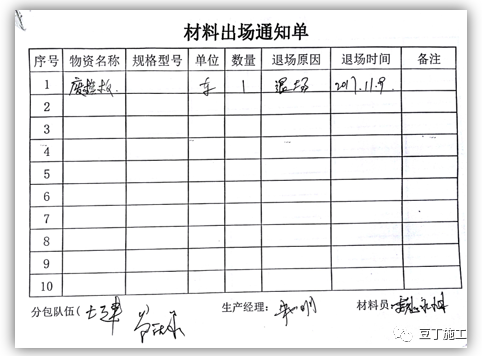 材料出场通知单
序号 物资名称 规格型号 单位 数量 退场原因 退场时间 备注
1 车 1 退场 2017.11.9.
2
3
4
5
6
7
8
9
10
分包队伍( 生产经理: 材料员:
豆丁施工